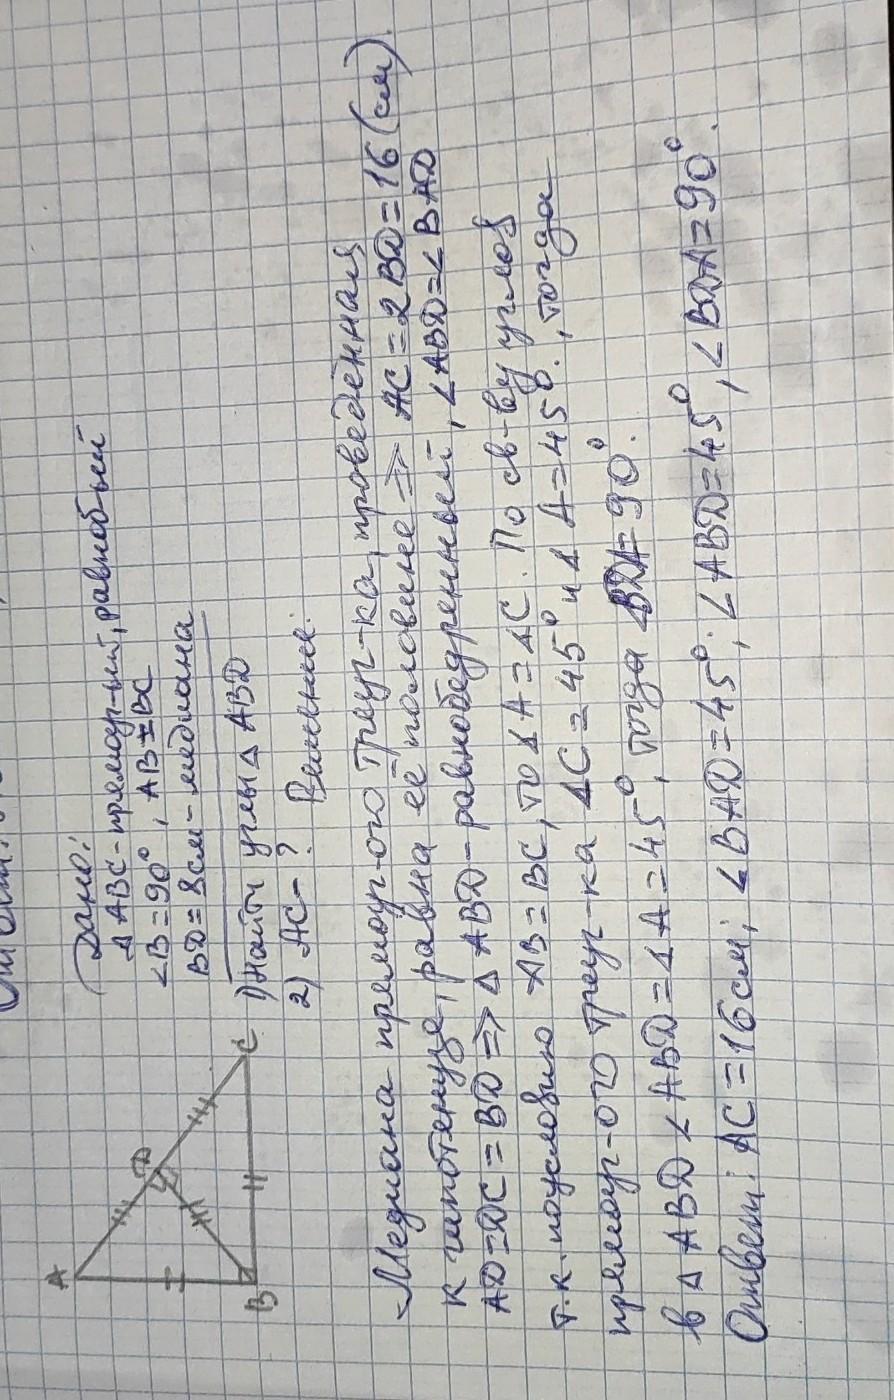 Дано:
△ABC-прямоуг-ый, равнобый
∠B=90°, AB=BC
BD=8см-медиана
1) Найти углы △ABD
2) AC-?
Решение.
A
D
B
C
Медиана прямоуг-ого треуг-ка, проведённая
к гипотенузе, равна её половине => AC=2BD=16(см).
AD=DC=BD => △ABD-равнобедренный, ∠ABD=∠BAD
т.к. поусловию AB=BC, то ∠A=∠C. По св-ву углов
прямоуг-ого треуг-ка ∠C=45° и ∠A=45°., тогда
в △ABD ∠ABD=∠A=45°, тогда BDA=90°.
Ответ: AC=16см; ∠BAD=45°; ∠ABD=45°, ∠BDA=90°.